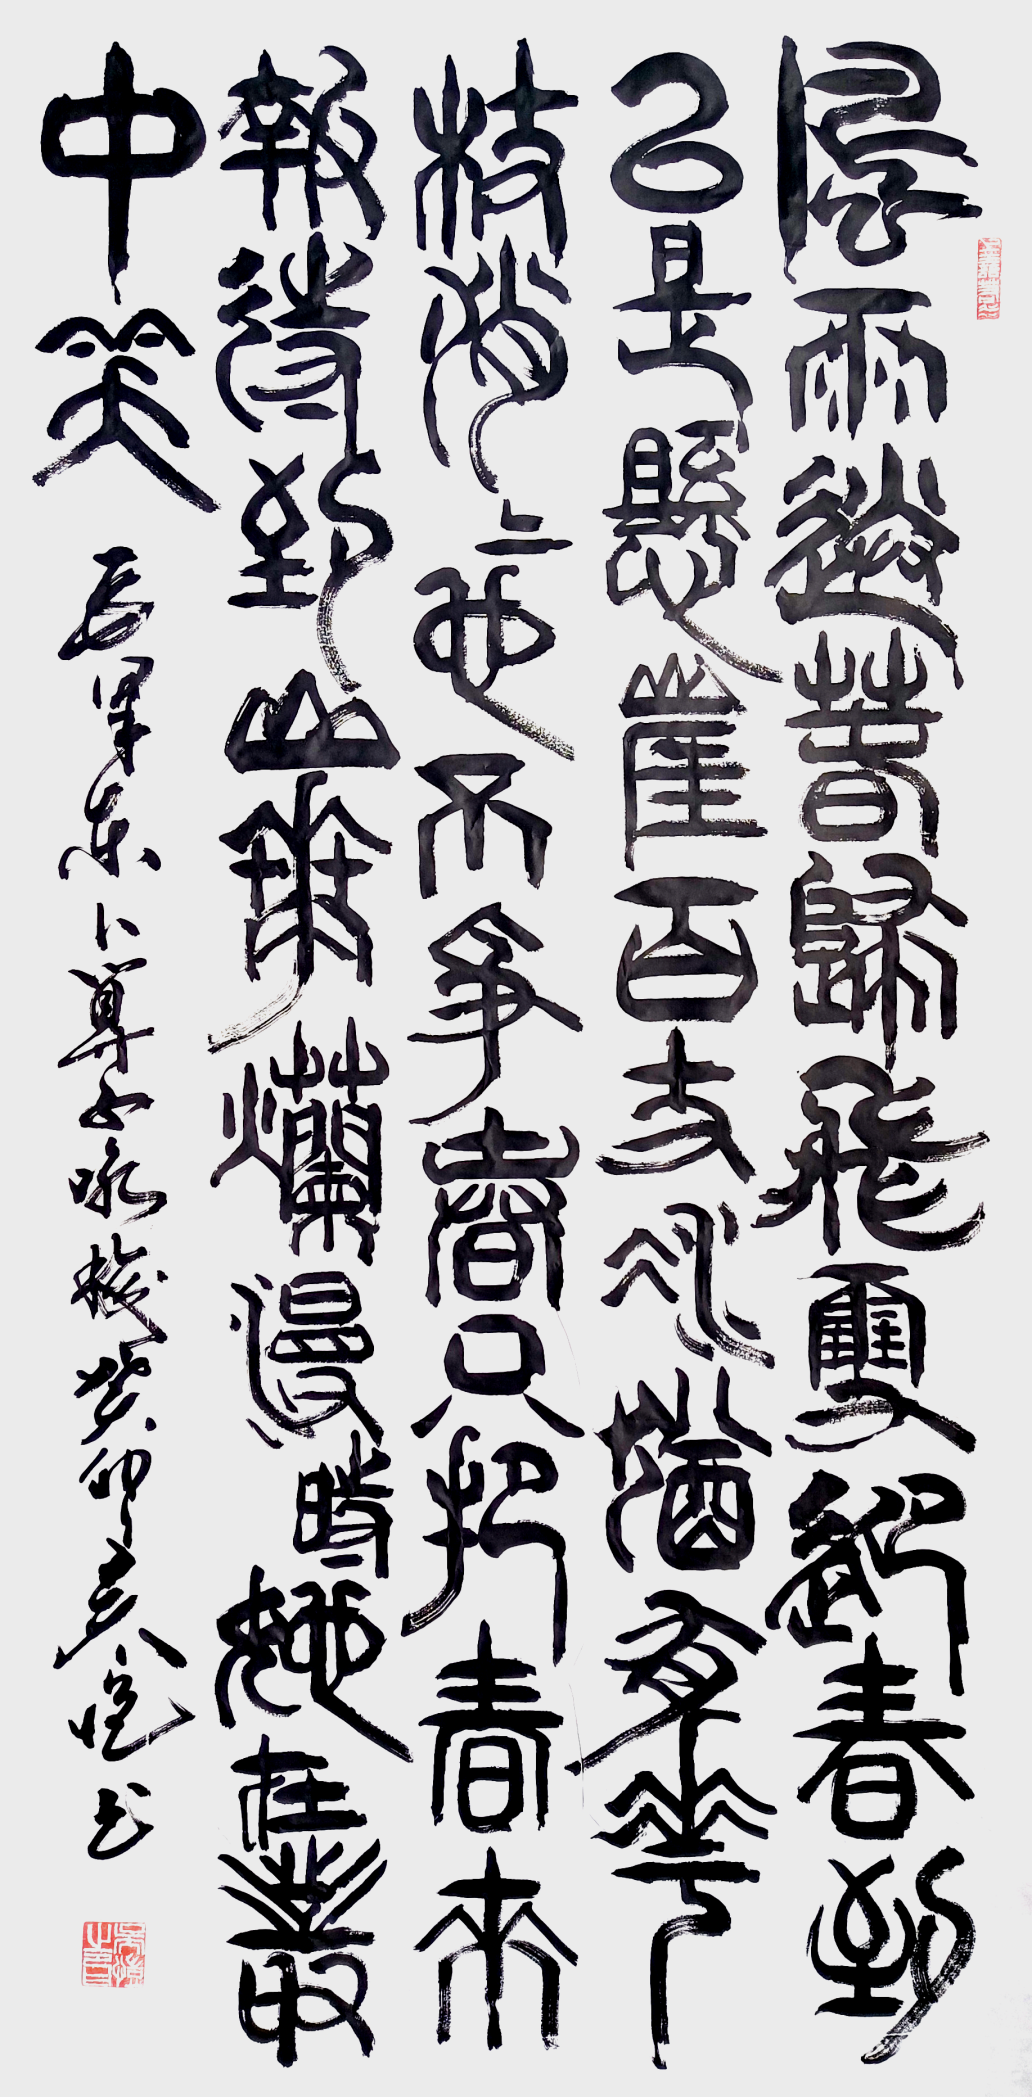 風雨送春歸飛雪迎春到
已是懸崖百丈冰猶有華
枝俏二也不爭春只把春來
報待到山華爛漫時她在叢
中笑
毛澤東卜算子咏梅癸卯吴书